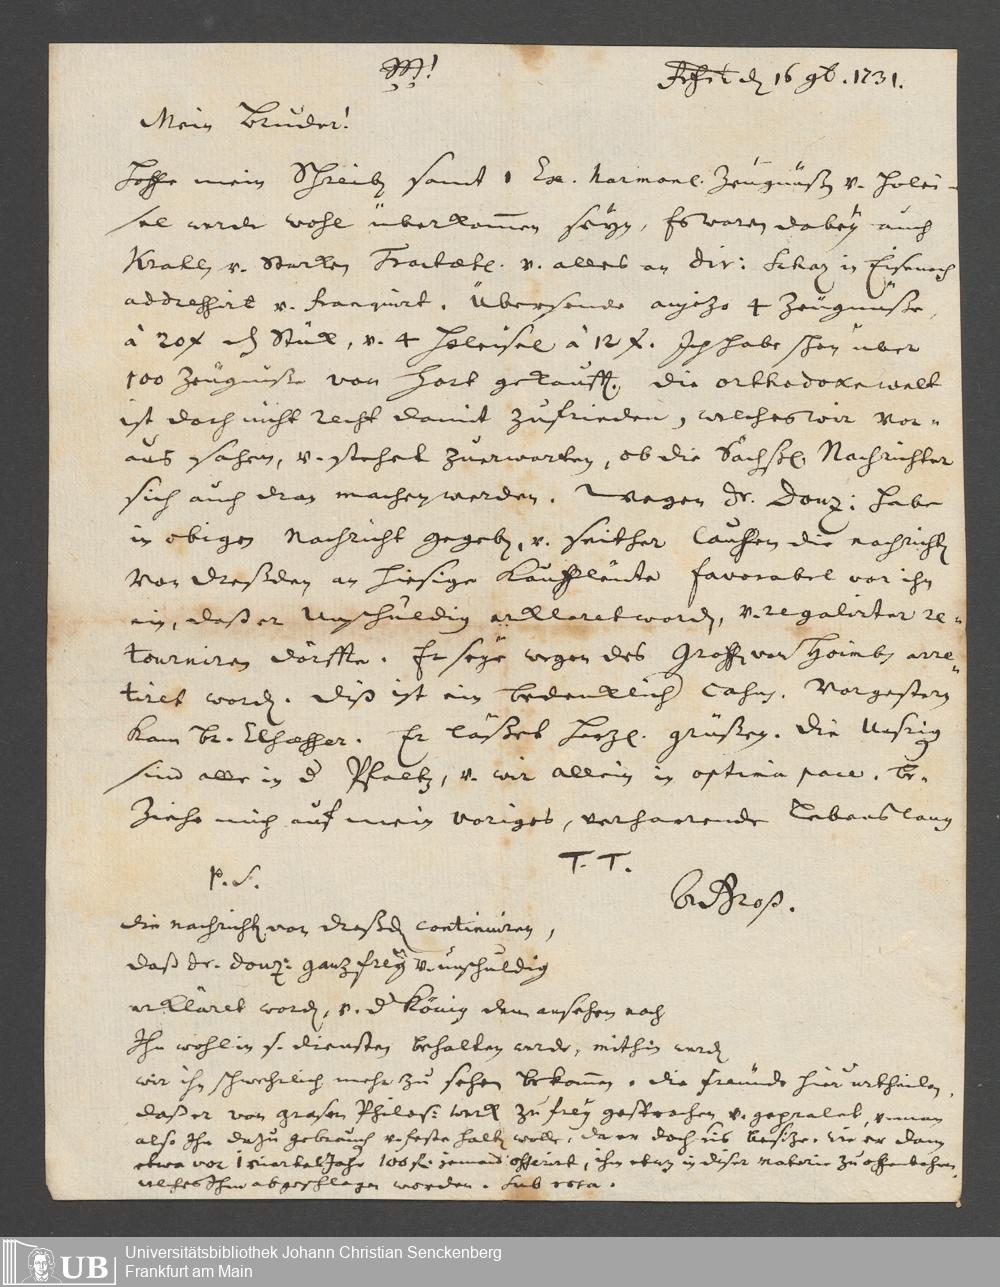 d 16 9b. 1731.
Mein Bruder!
Hoffe mein Schreiben samt 1 Ex. Harmonl. Zeugnüß v. Holei-
sel werde wohl überkommen seyn, Es waren dabey auch
v. Starken Tractætl. v. alles an Dir: in Eisenach
addressirt v. franquirt. Übersende anjezo 4 Zeügnüße,
à 20 x das Stück, v. 4 Holeisel à 12 x. Ich habe schon über
100 Zeugnuße von Hort gekaufft. die orthodoxe welt
ist doch nicht recht damit zufrieden, welches wir vor-
aus sahen, v. stehet zuerwarten, ob die Sächsl. Nachrichter
sich auch dran machen werden. Wegen Dr. Donz: habe
in obigen Nachricht gegeben, v. seither lauffen die nachrichten
von dreßden an hiesige Kauffleute favorabel vor ihn
ein, daß er Unschuldig erklæret worden, v. regalirter re-
tourniren dörffte. Er seye wegen des Graffen von Hoimbs arre-
tiret worden. Diß ist ein bedenklich Cahus. Vorgestern
kam br. Er läßet herzl. grüßen. die Unsrig
sind alle in d Pfaltz, v. wir allein in optima pace. Be-
ziehe mich auf mein voriges, verharrende Lebenslang
T. T.
br Groß.
P. S.
die nachrichten von dreßden continuiren,
daß dr. donz: ganz frey v. unschuldig
erkläret worden, v. d König dem ansehen nach
Ihn wohl in s. diensten behalten werde, mithin werden
wir ihn schwehrlich mehr zu sehen bekommen. die freunde hier urtheilen,
daß er von grosen Philos: werk zu frey gesprochen v. geprahlet, v. man
also Ihn dazu gebrauch v. feste halten wolle, da er doch nis besize. wie er dann
etwa vor 1 Quartal Jahr 100 fl. jemand offerirt, ihm etwas in diser materie zu offenbahren,
welches Ihm abgeschlagen worden. Sub rosa.
UB
Universitätsbibliothek Johann Christian Senckenberg
Frankfurt am Main